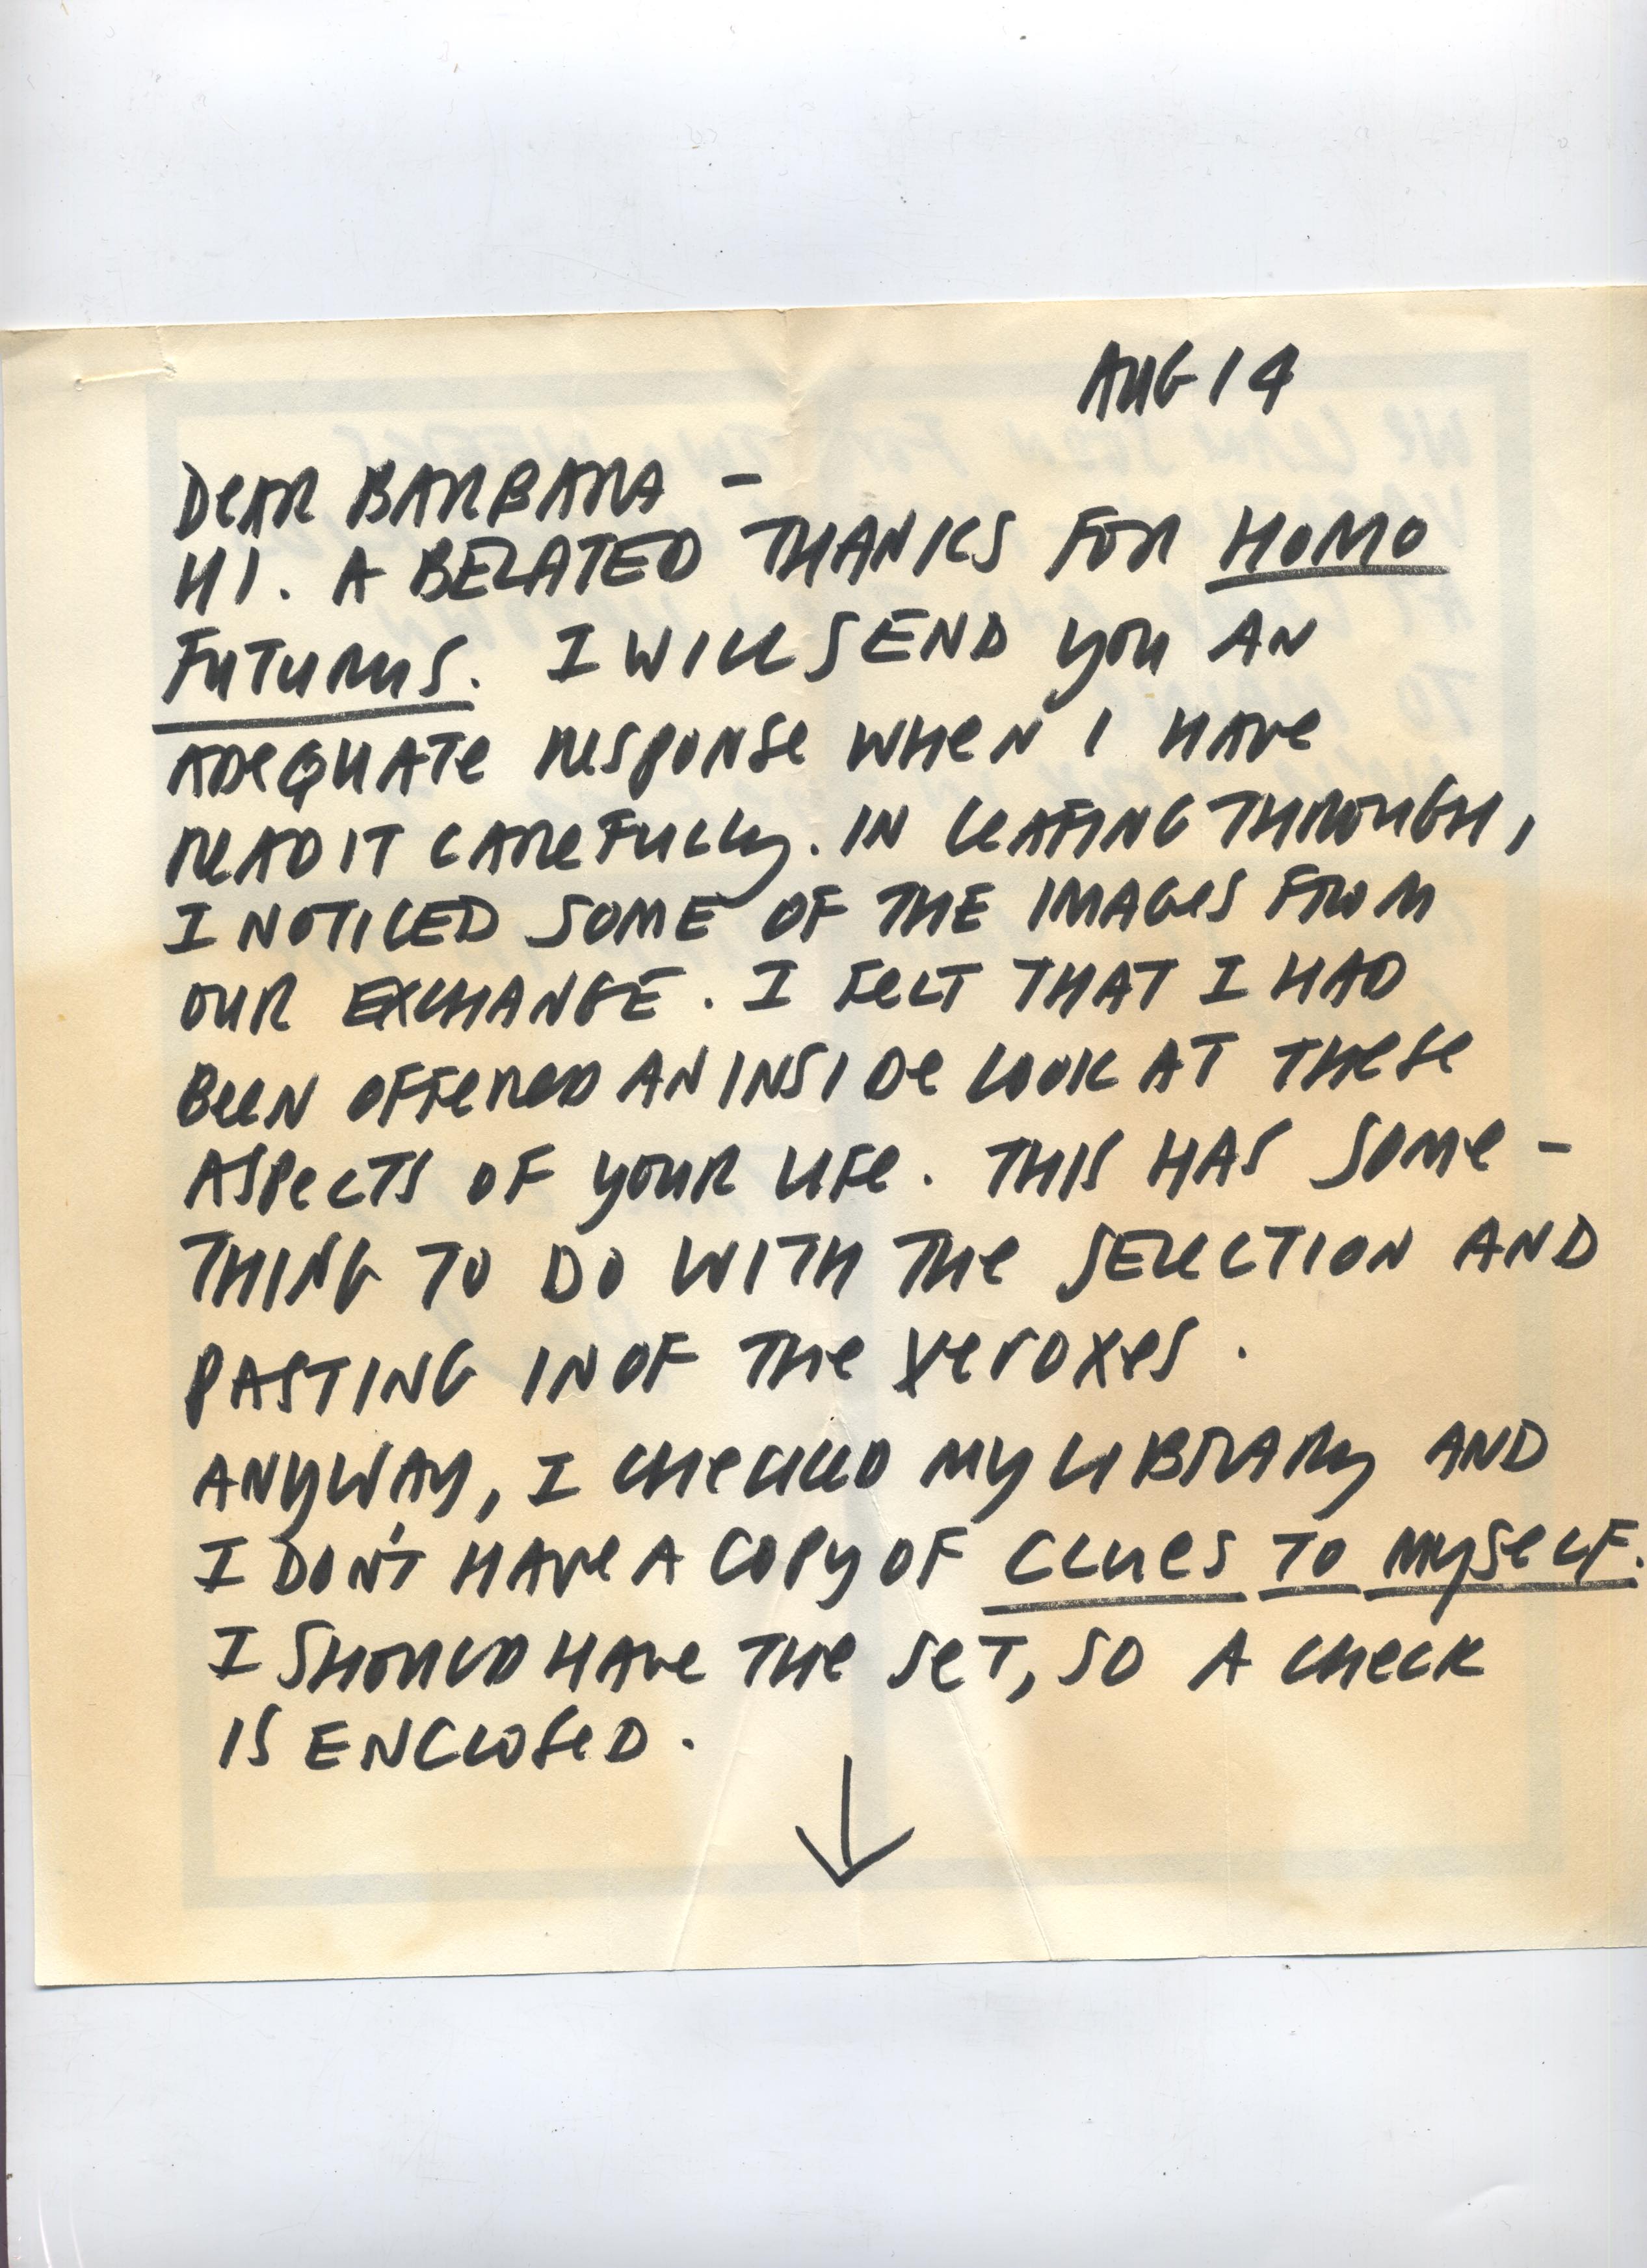 AUG 14
DEAR BARBARA -
HI. A BELATED THANKS FOR HOMO
FUTURUS. I WILL SEND YOU AN
ADEQUATE RESPONSE WHEN I HAVE
READ IT CAREFULLY. IN LEAFING THROUGH,
I NOTICED SOME OF THE IMAGES FROM
OUR EXCHANGE. I FELT THAT I HAD
BEEN OFFERED AN INSIDE LOOK AT THESE
ASPECTS OF YOUR LIFE. THIS HAS SOME-
THING TO DO WITH THE SELECTION AND
PASTING IN OF THE XEROXES.
ANYWAY, I CHECKED MY LIBRARY AND
I DON'T HAVE A COPY OF CLUES TO MYSELF.
I SHOULD HAVE THE SET, SO A CHECK
IS ENCLOSED.